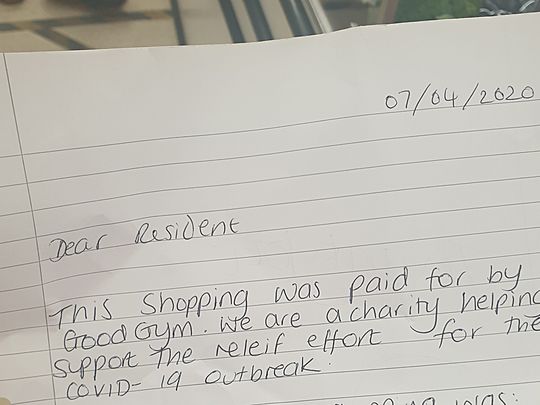 07/04/2020
Dear Resident
This Shopping was paid for by
GoodGym. We are a charity helping
support the releif effort for the
COVID-19 outbreak.
was: